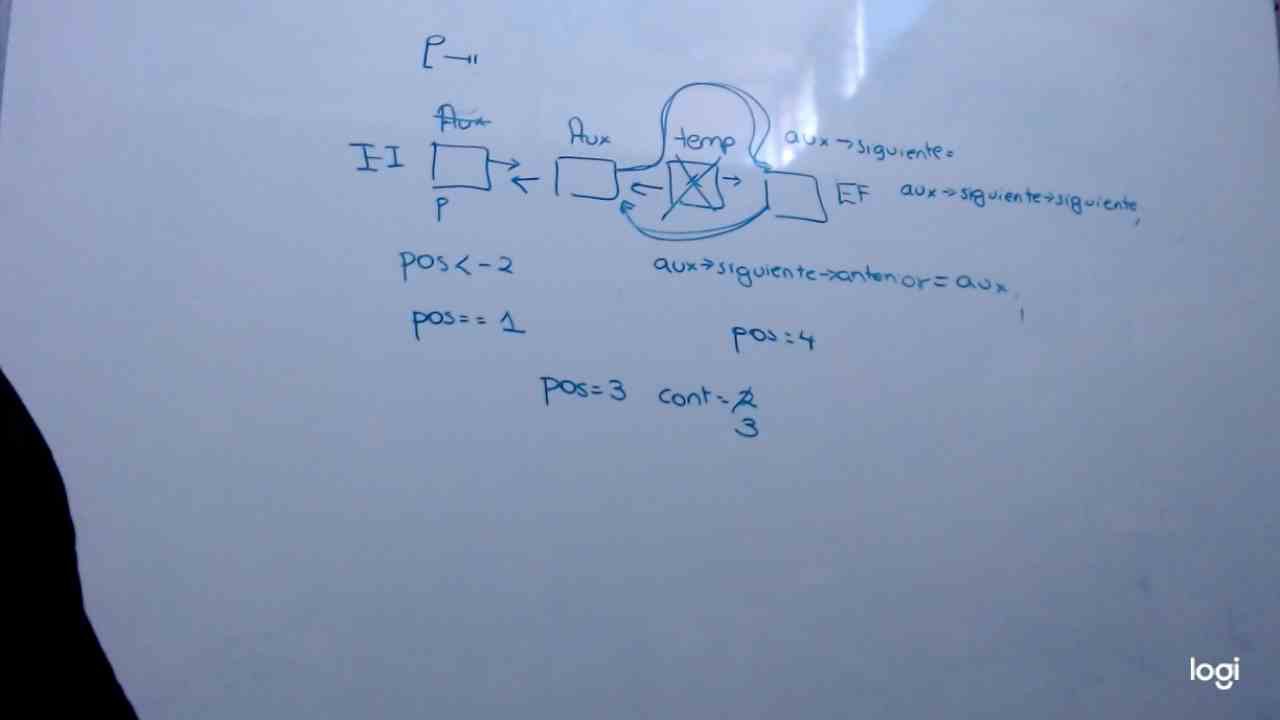 P
Aux
Aux
temp
aux→siguiente=
II
EF
aux→siguiente→siguiente;
P
pos<-2
aux→siguiente→anterior=aux;
pos==1
pos=4
pos=3 cont=2
3
logi